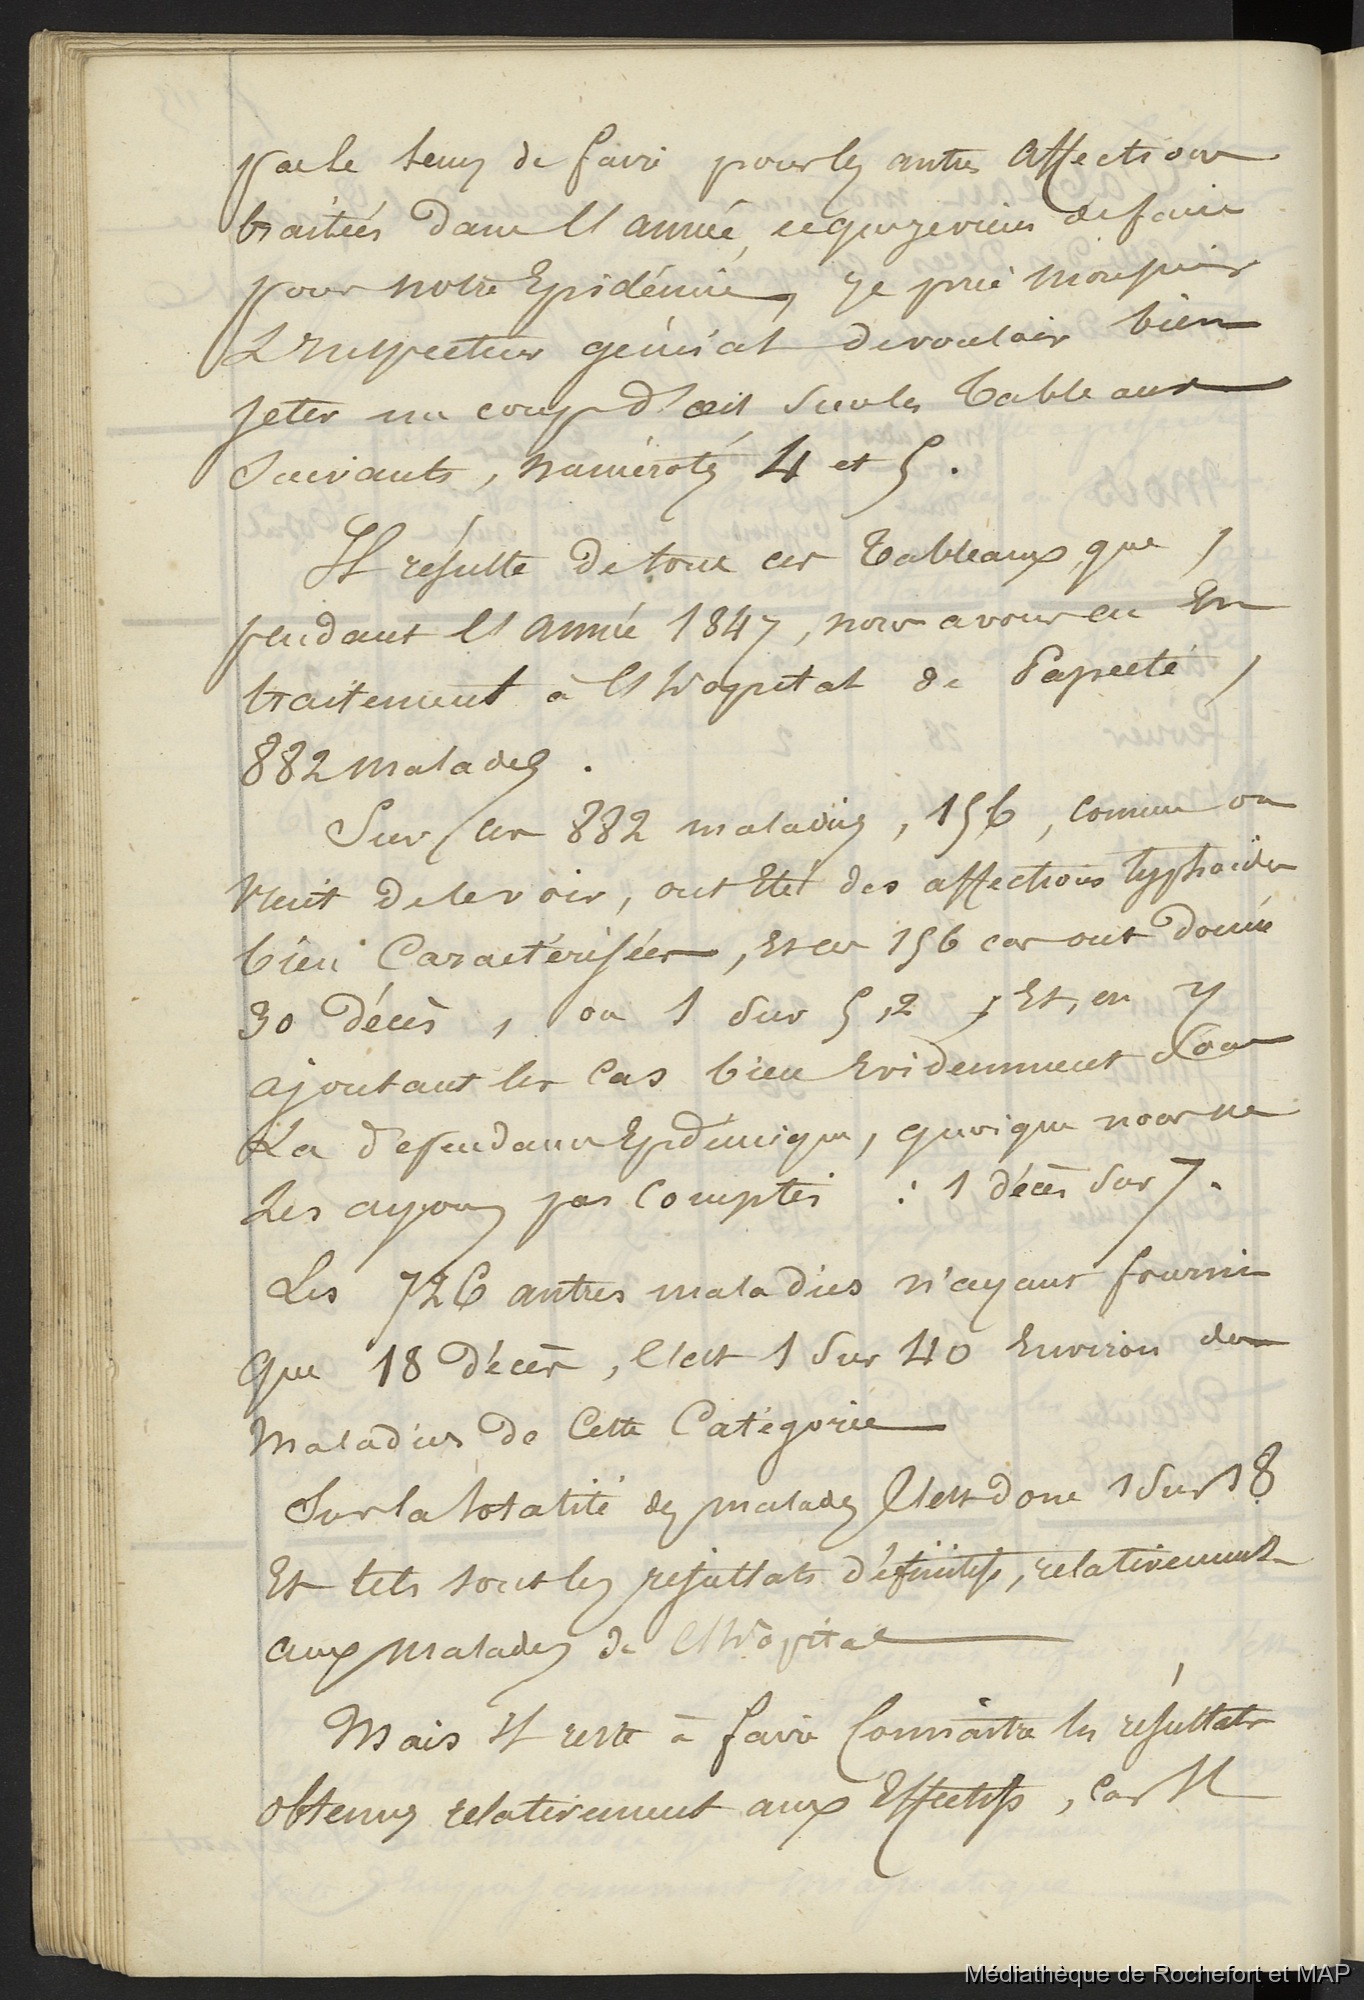 pas le tems de faire pour les autres affections
traitées dans l'année, ce que je viens de faire
pour notre Epidémie, je prie monsieur
L'Inspecteur général de vouloir bien
jeter un coup d'œil sur les Tableaux
suivants, numérotés 4 et 5.
Il résulte de tous ces Tableaux, que,
pendant l'année 1847, nous avons eu En
traitement à l'hopital de Papeete,
882 malades.
Sur ces 882 maladies, 156, comme on
vient de le voir, ont Eté des affections typhoïdes
bien Caractérisées, Et ces 156 cas ont donné
30 décès, ou 1 sur 5,2; Et, en y
ajoutant les cas bien Evidemment sous
La dépendance Epidémique, quoique nous ne
Les ayons pas comptés : 1 décès sur 7.
Les 726 autres maladies n'ayant fourni
que 18 décès, C'est 1 sur 40 Environ des
Maladies de Cette Catégorie
Sur la totalité des malades C'est donc 1 sur 18
Et tels sont les résultats définitifs, relativement
aux malades de l'hopital
Mais Il reste à faire Connaître les résultats
obtenus relativement aux Effectifs, car Il
Médiathèque de Rochefort et MAP